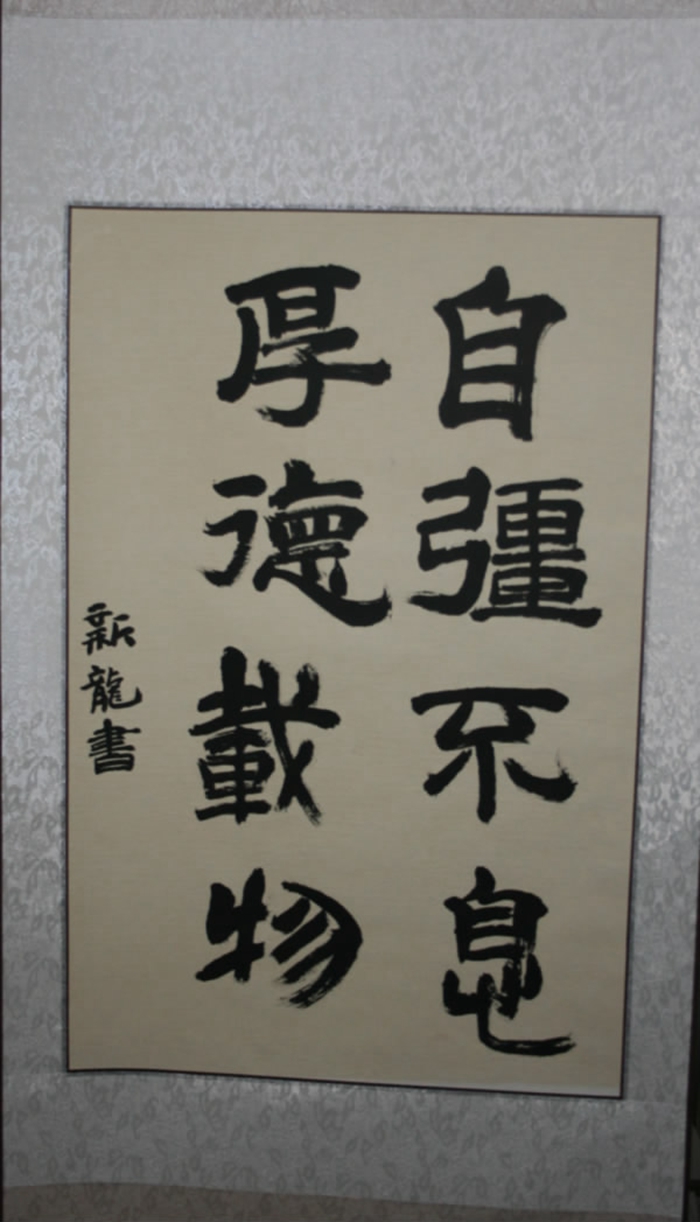 自彊不息
厚德載物
新龍書